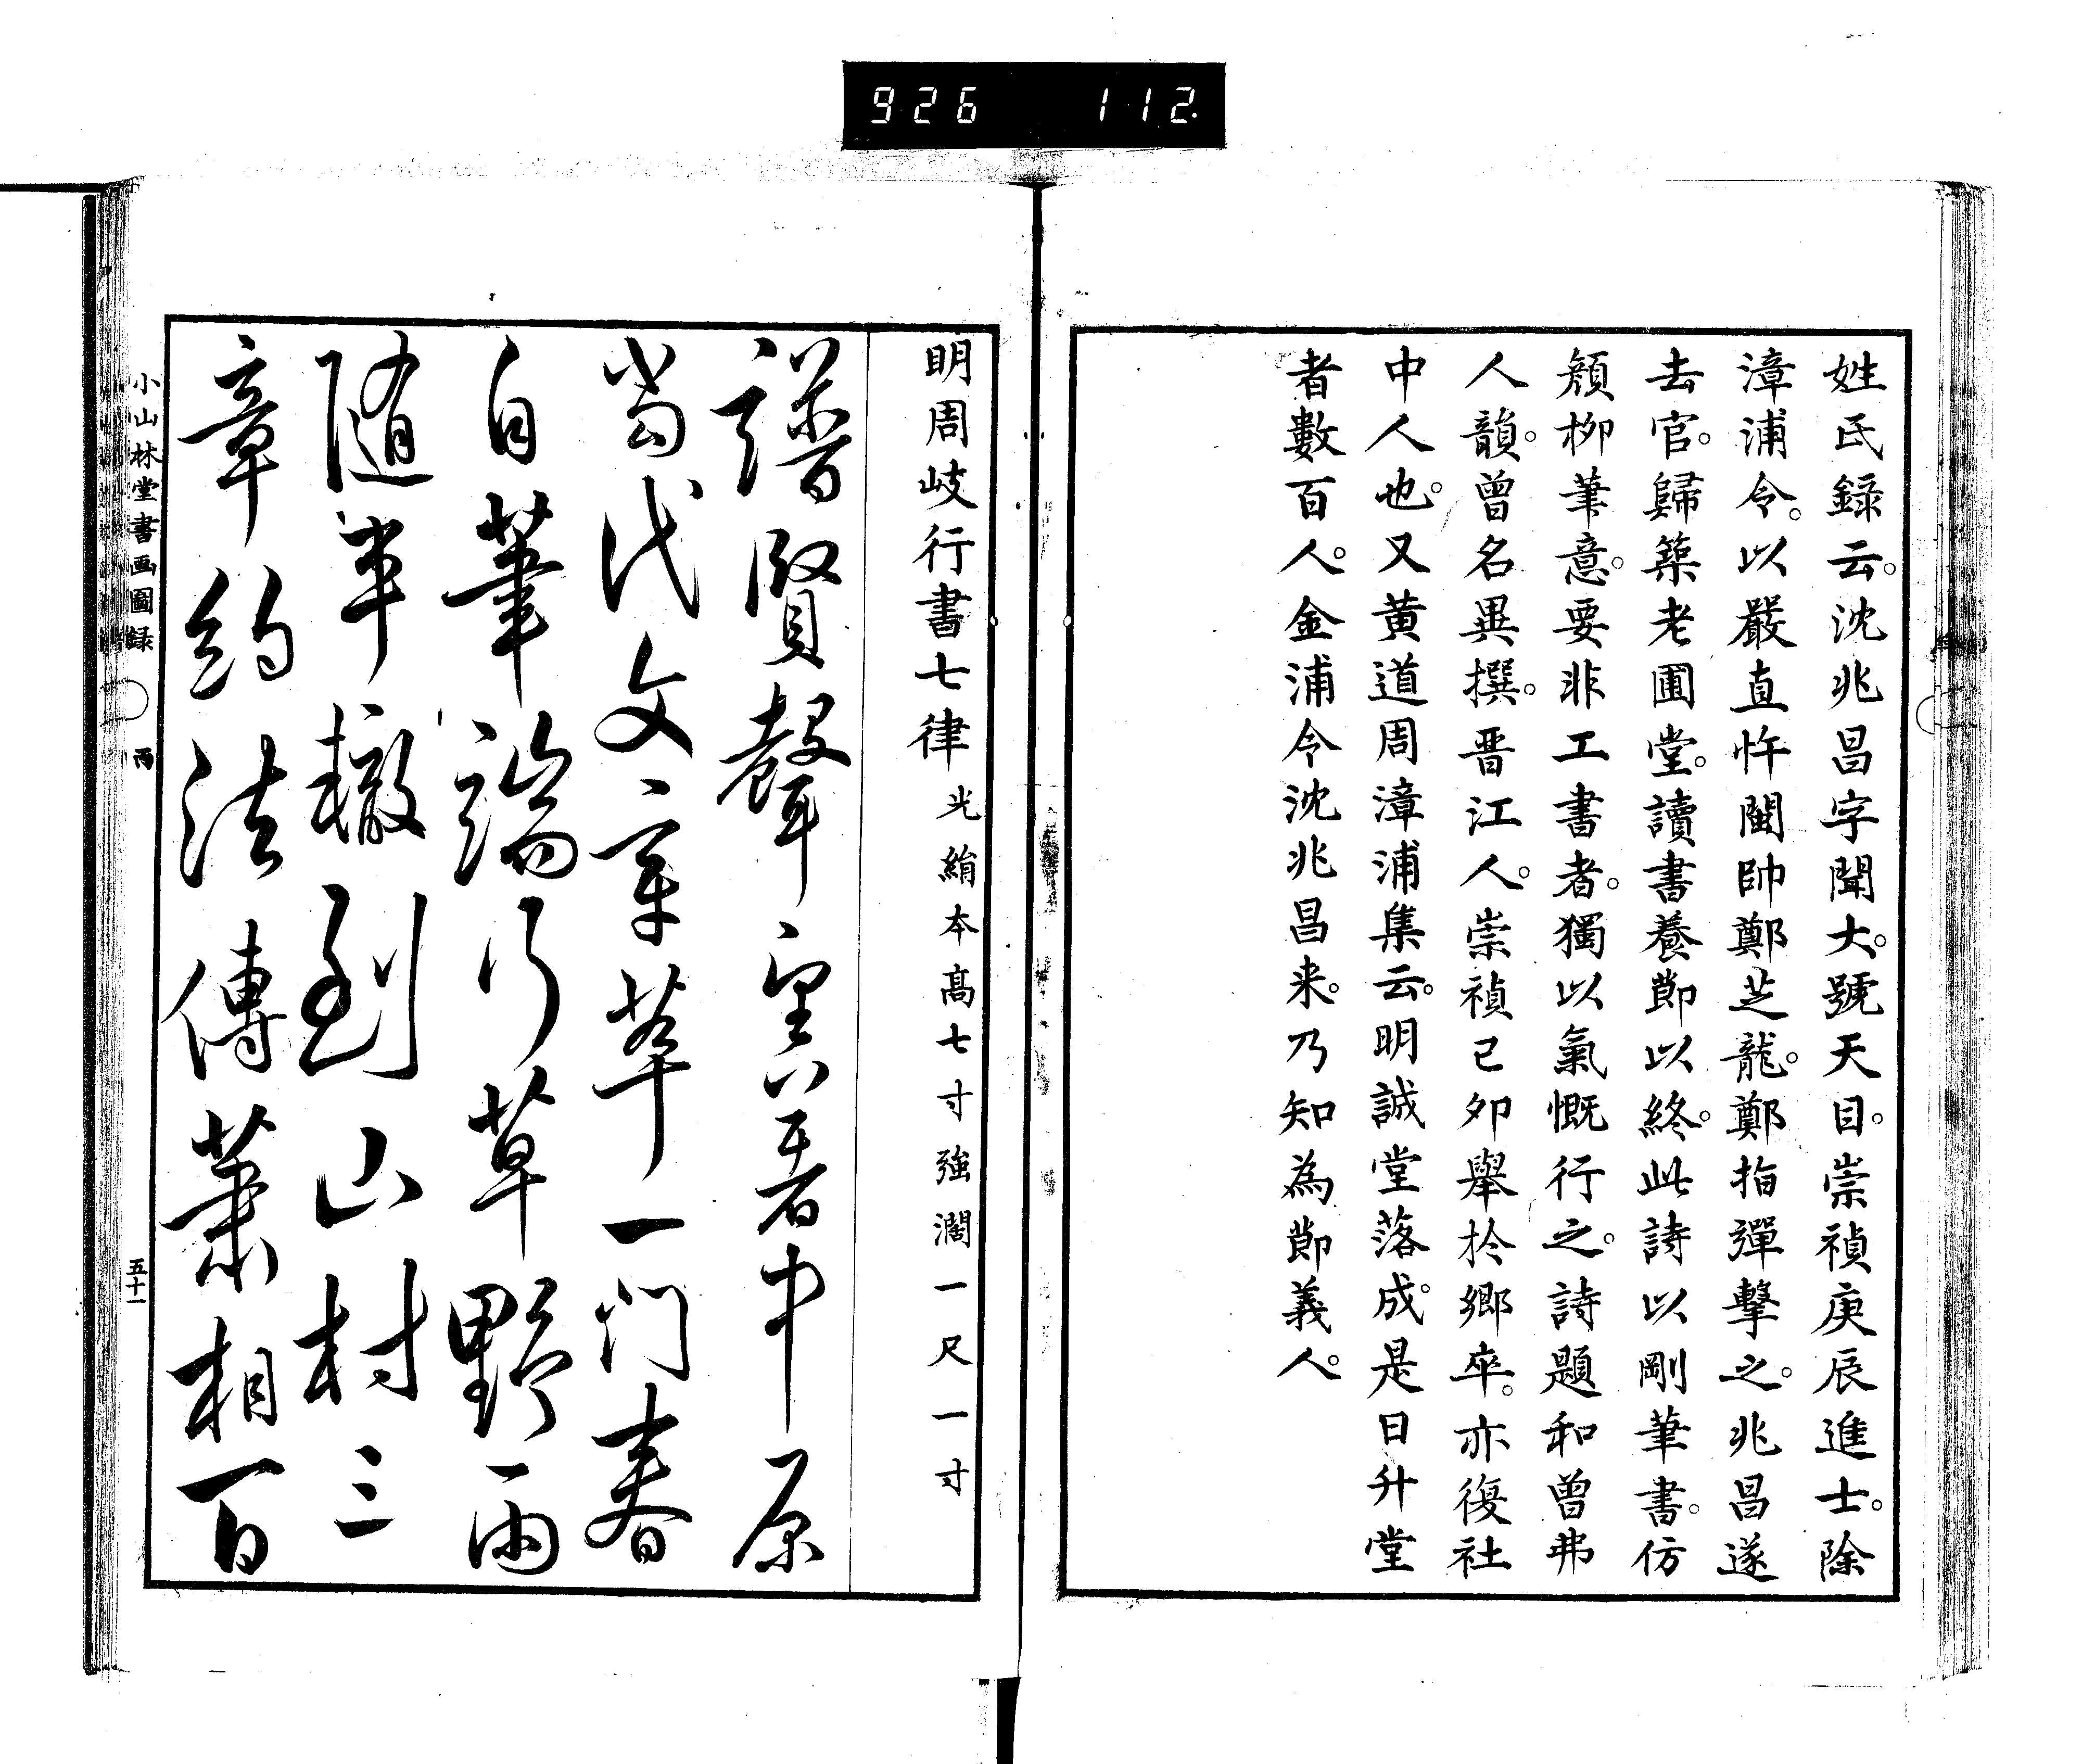 926 112.
姓氏録云。沈兆昌字聞大。號天目。崇禎庚辰進士。除
漳浦令。以嚴直忤閩帥鄭芝龍。鄭指彈擊之。兆昌遂
去官。歸築老圃堂。讀書養節以終。此詩以剛筆書。仿
頬柳筆意。要非工書者。獨以氣慨行之。詩題和曽弗
人韻。曽名異撰。晋江人。崇禎己卯舉於鄉卒。亦復社
中人也。又黄道周漳浦集云。明誠堂落成。是日升堂
者數百人。金浦令沈兆昌来。乃知為節義人。
明周岐行書七律 光絹本高七寸強濶一尺一寸
諸賢聲望著中原
當代文章萃一門春
自華端行草野雨
随車轍到山村三
章約法傳蕭相百
小山林堂書画圖録 丙 五十一